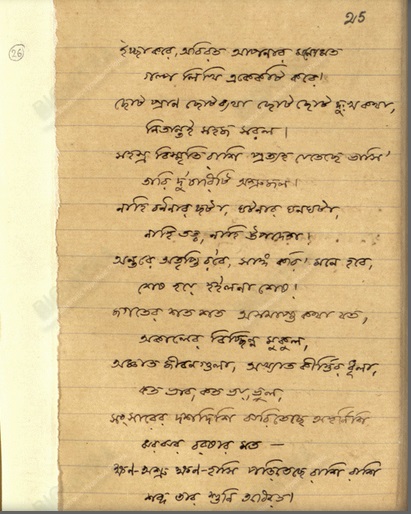 25
26
ইচ্ছা করে, অবিরত আপনার মনোমত
গল্প লিখি একেকটি করে!
ছোট প্রাণ ছোট ব্যথা ছোট ছোট দুঃখ কথা,
নিতান্তই সহজ সরল।
সহস্র বিস্মৃতি রাশি প্রত্যহ যেতেছে ভাসি'
তারি দু'চারিটি অশ্রুজল।
নাহি বর্ণনার ছটা, ঘটনার ঘনঘটা,
নাহি তত্ত্ব, নাহি উপদেশ।
অন্তরে অতৃপ্তি র'বে, সাঙ্গ করি' মনে হবে,
শেষ হয়ে হইলনা শেষ!
জগতের শত শত অসমাপ্ত কথা যত,
অকালের বিচ্ছিন্ন মুকুল,
অজ্ঞাত জীবনগুলা, অখ্যাত কীর্ত্তির ধূলা,
কত ভাব, কত ভয় ভুল,
সংসারের দশদিশি ঝরিতেছে অহর্নিশি
ঝরঝর বরষার মত —
ক্ষণ-অশ্রু ক্ষণ-হাসি পড়িতেছে রাশি রাশি
শব্দ তার শুনি অবিরত।